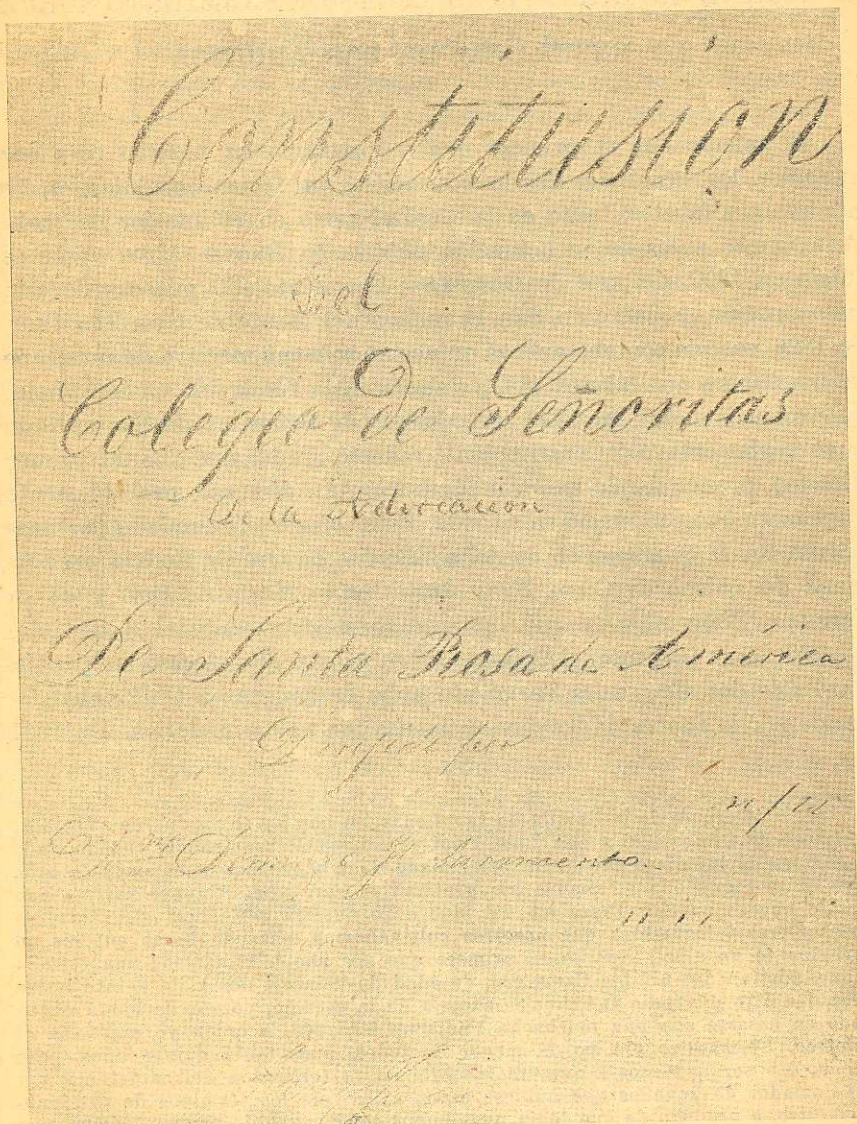 Constitusion
Del
Colegio de Señoritas
De la Adbocacion
De Santa Rosa de América
por
Domingo F. Sarmiento